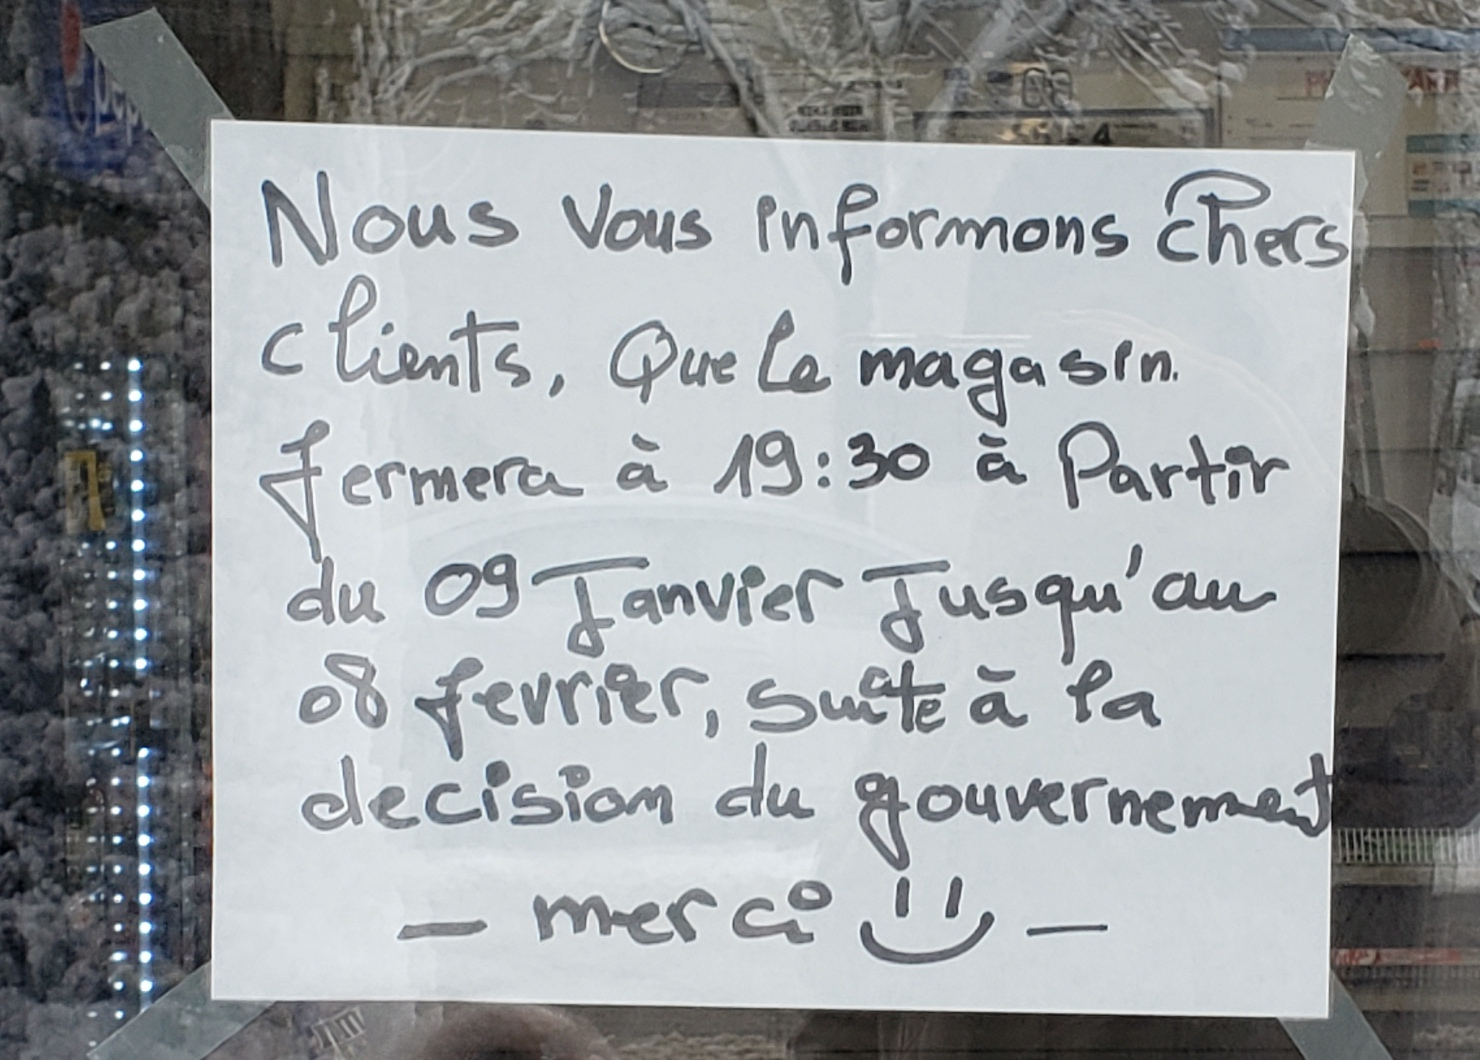 Nous vous informons chers
clients, Que le magasin.
fermera à 19:30 à Partir
du 09 Janvier Jusqu'au
08 fevrier, suite à la
decision du gouvernement
— merci —